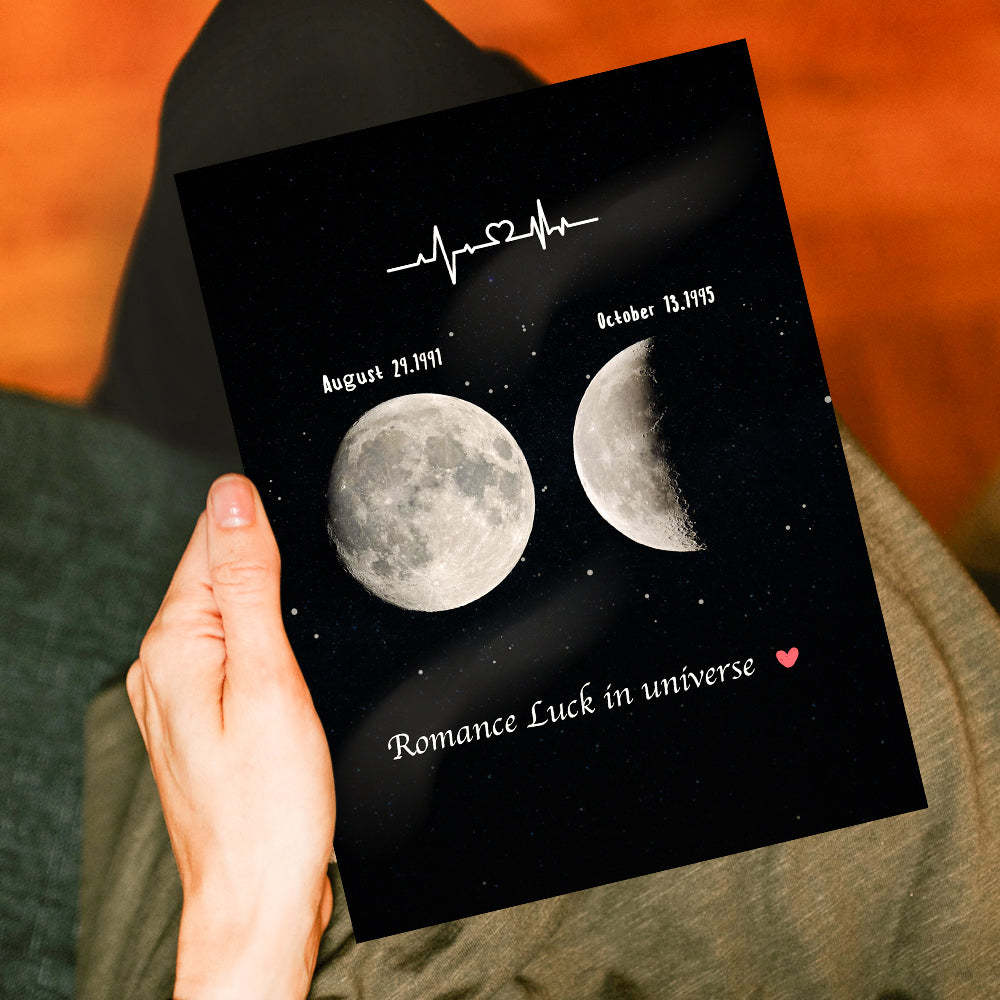 August 29.1991
October 13.1995
Romance Luck in universe